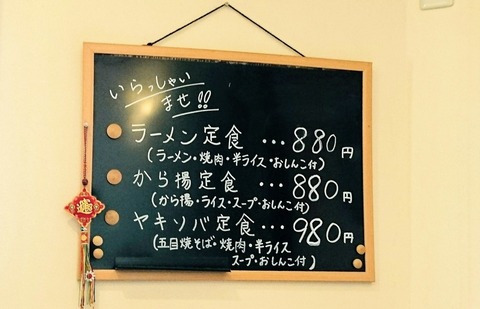 いらっしゃい
ませ!!
ラーメン定食 …880円
(ラーメン・焼肉・半ライス・おしんこ付)
から揚定食 …880円
(から揚・ライス・スープ・おしんこ付)
ヤキソバ定食 …980円
(五目焼そば・焼肉・半ライス
スープ・おしんこ付)